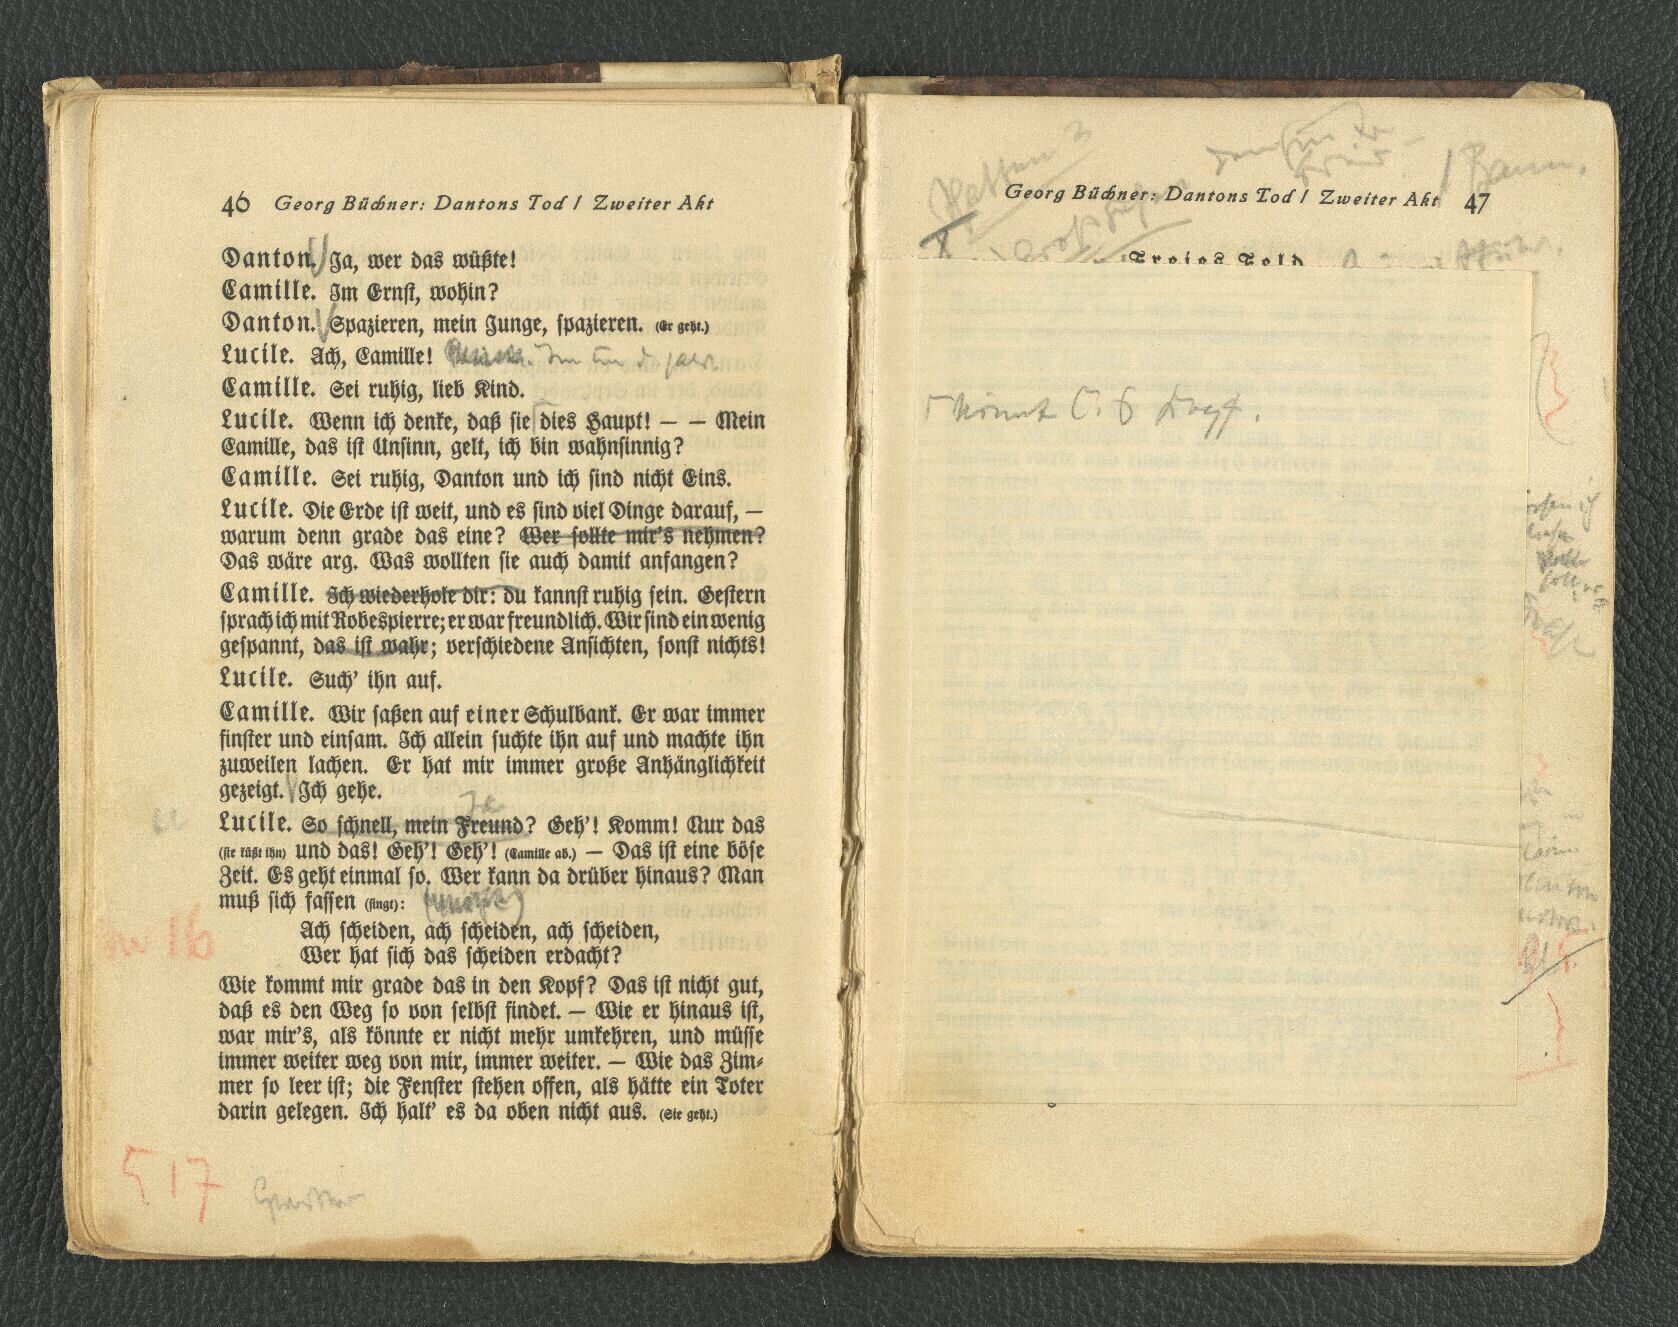 46 Georg Büchner: Dantons Tod / Zweiter Akt
Danton. Ja, wer das wüßte!
Camille. Im Ernst, wohin?
Danton. Spazieren, mein Junge, spazieren. (Er geht.)
Lucile. Ach, Camille!
Camille. Sei ruhig, lieb Kind.
Lucile. Wenn ich denke, daß sie dies Haupt! — — Mein
Camille, das ist Unsinn, gelt, ich bin wahnsinnig?
Camille. Sei ruhig, Danton und ich sind nicht Eins.
Lucile. Die Erde ist weit, und es sind viel Dinge darauf, —
warum denn grade das eine? Wer sollte mir's nehmen?
Das wäre arg. Was wollten sie auch damit anfangen?
Camille. Ich wiederhole dir: du kannst ruhig sein. Gestern
sprach ich mit Robespierre; er war freundlich. Wir sind ein wenig
gespannt, das ist wahr; verschiedene Ansichten, sonst nichts!
Lucile. Such' ihn auf.
Camille. Wir saßen auf einer Schulbank. Er war immer
finster und einsam. Ich allein suchte ihn auf und machte ihn
zuweilen lachen. Er hat mir immer große Anhänglichkeit
gezeigt. Ich gehe.
Lucile. So schnell, mein Freund? Geh'! Komm! Nur das
(sie küßt ihn) und das! Geh'! Geh'! (Camille ab.) — Das ist eine böse
Zeit. Es geht einmal so. Wer kann da drüber hinaus? Man
muß sich fassen (singt):
Ach scheiden, ach scheiden, ach scheiden,
Wer hat sich das scheiden erdacht?
Wie kommt mir grade das in den Kopf? Das ist nicht gut,
daß es den Weg so von selbst findet. — Wie er hinaus ist,
war mir's, als könnte er nicht mehr umkehren, und müsse
immer weiter weg von mir, immer weiter. — Wie das Zim-
mer so leer ist; die Fenster stehen offen, als hätte ein Toter
darin gelegen. Ich halt' es da oben nicht aus. (Sie geht.)
16
5 17
Georg Büchner: Dantons Tod / Zweiter Akt 47
Freies Feld